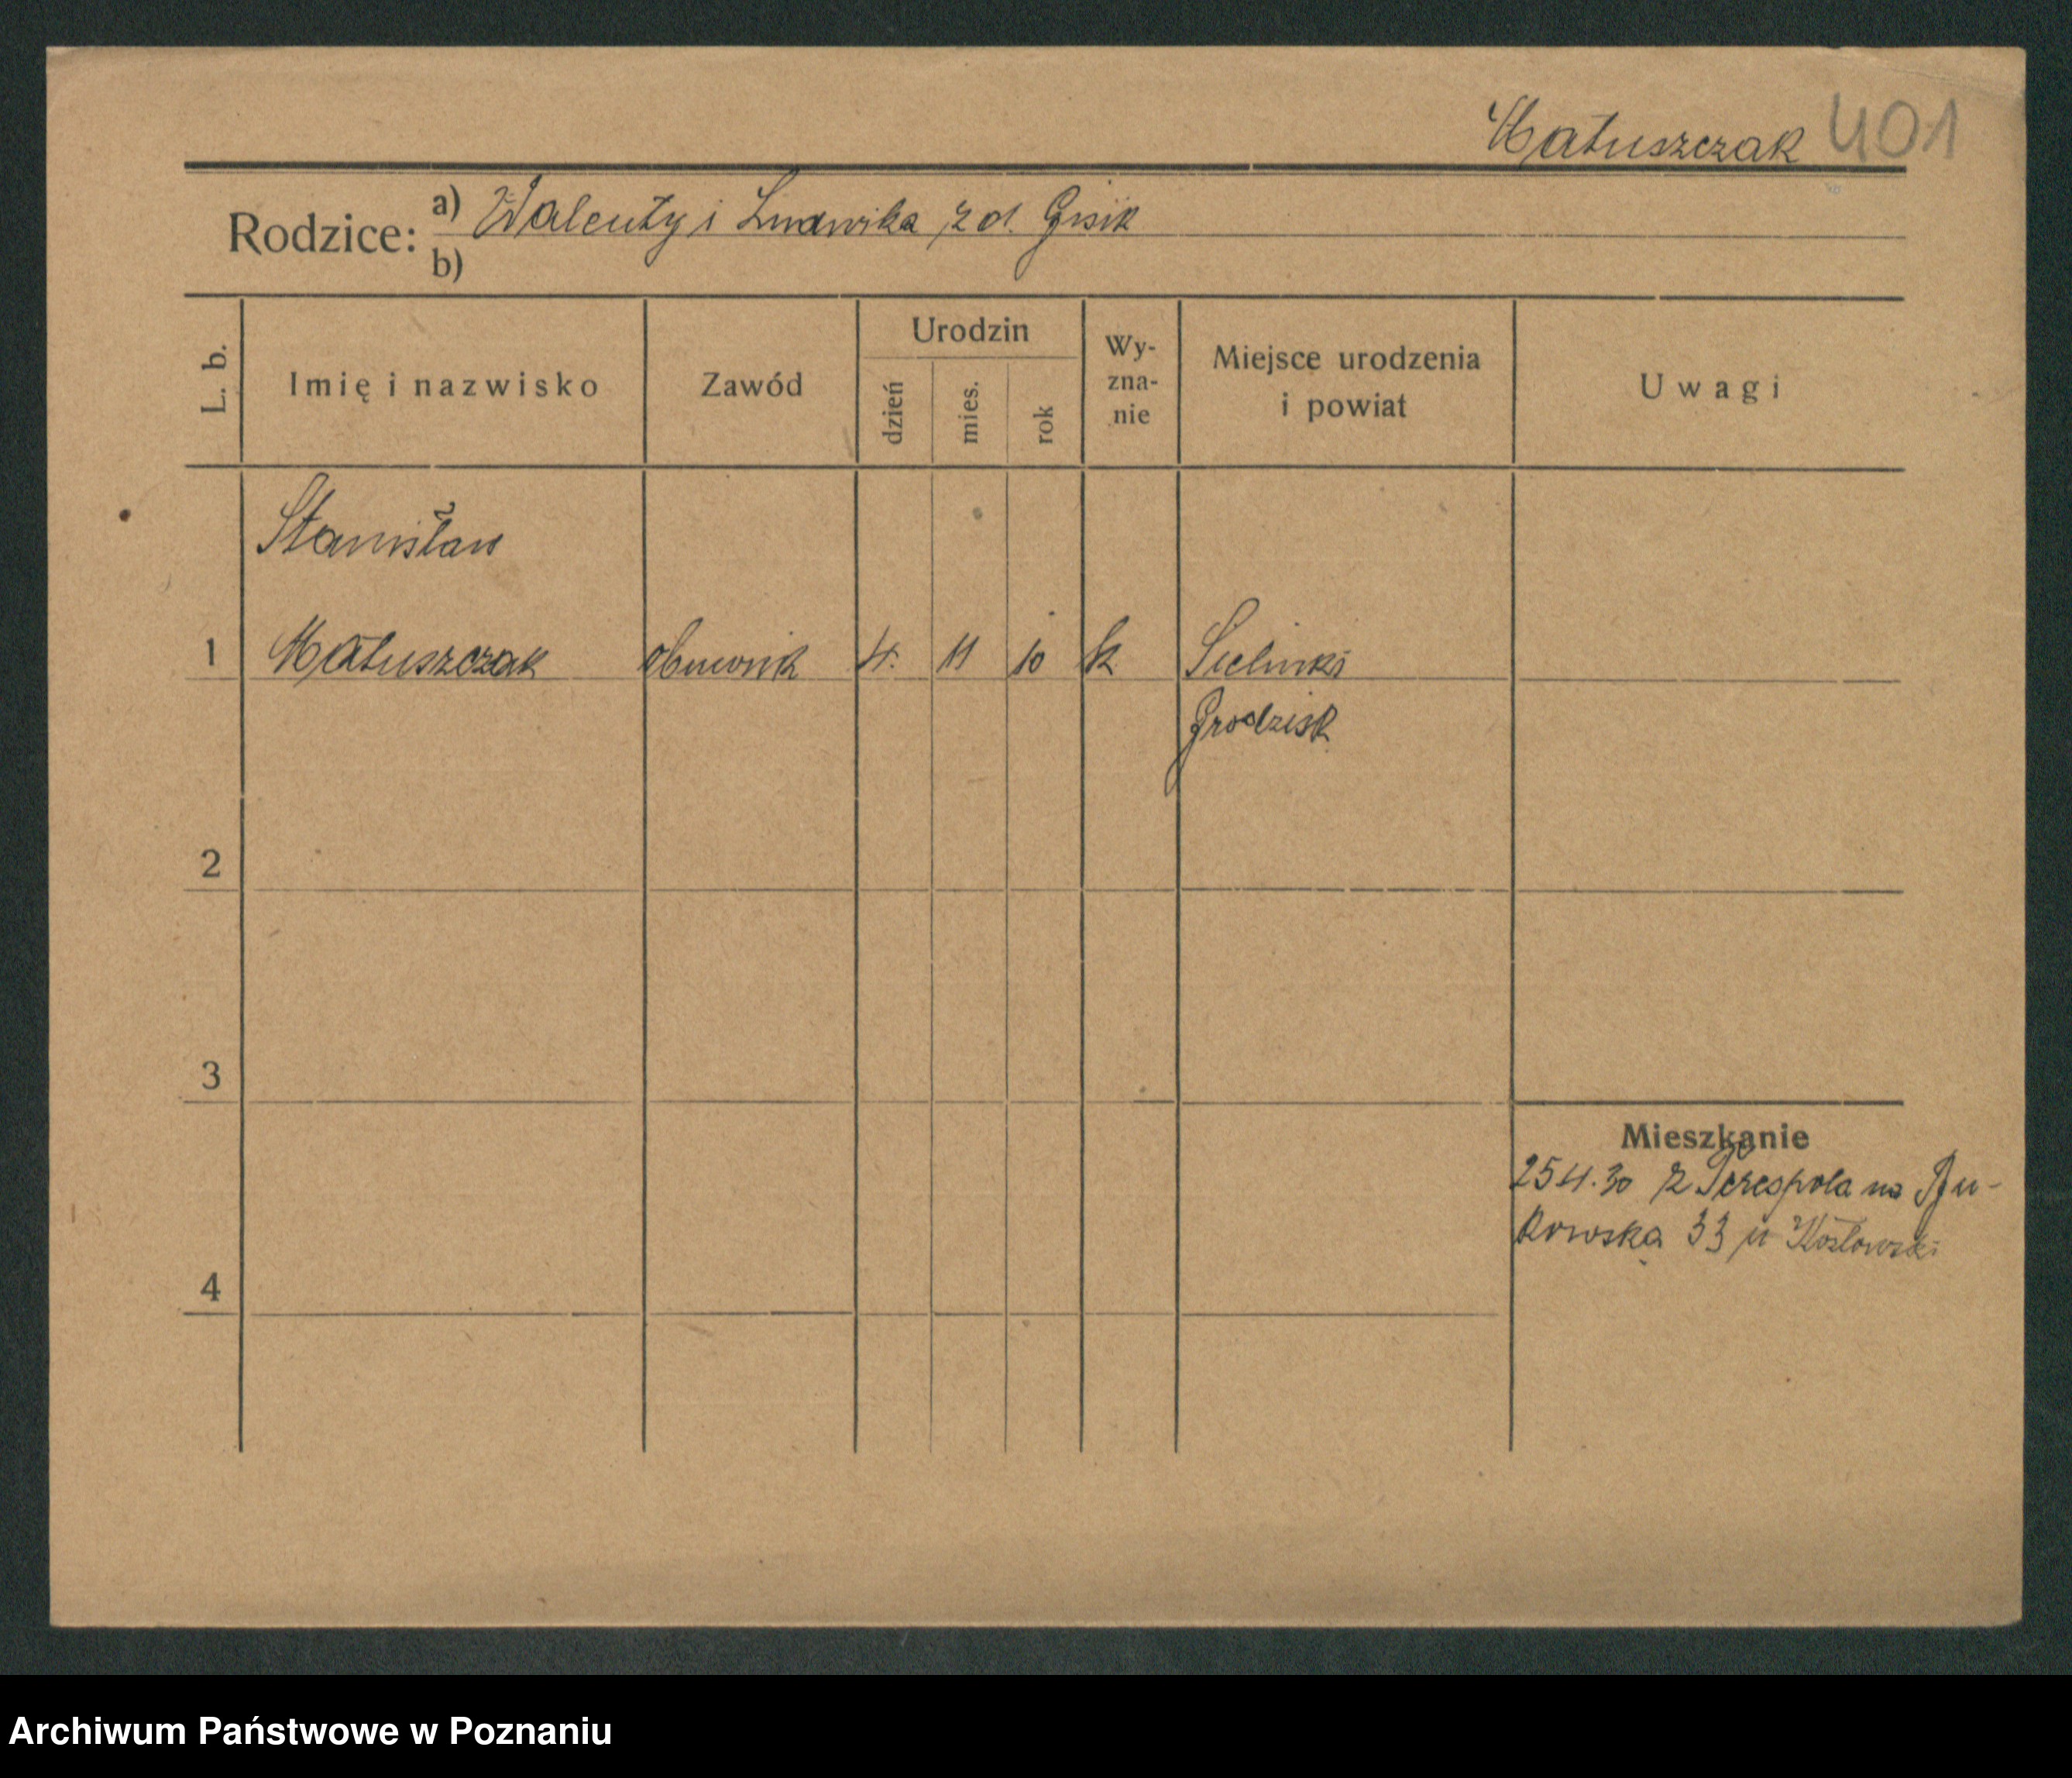 Matuszczak 401
Rodzice: a) Walenty i Ludwika z d. Gisik
b)
L. b. Imię i nazwisko Zawód Urodzin dzień mies. rok Wy-zna-nie Miejsce urodzenia i powiat Uwagi
Stanisław
1 Matuszczak obuwnik 4. 11 10 k Sielinko
Grodzisk
2
3
Mieszkanie
25 4. 30 z Terespola na Bu-
kowska 33 u Kozłowski
4
Archiwum Państwowe w Poznaniu